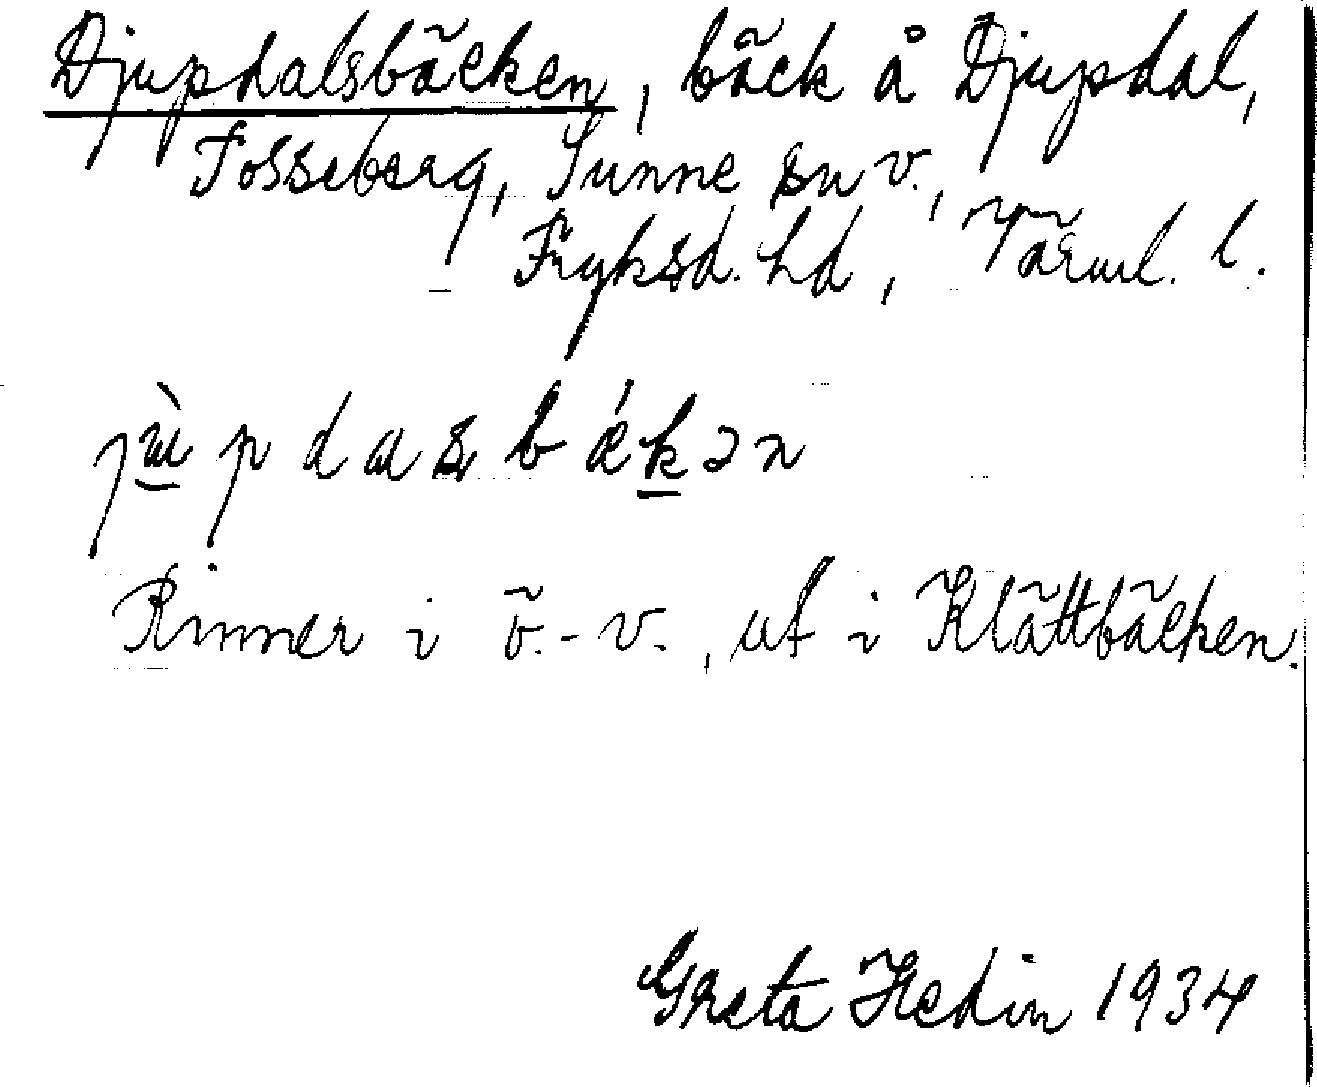 Djupdalsbäcken, bäck å Djupdal,
Fosseberg, Sunne sn v.,
Fryksd. hd, Värml. l.
jùpdasbǽkən
Rinner i ö.-v., ut i Klättbäcken.
Greta Hedin 1934